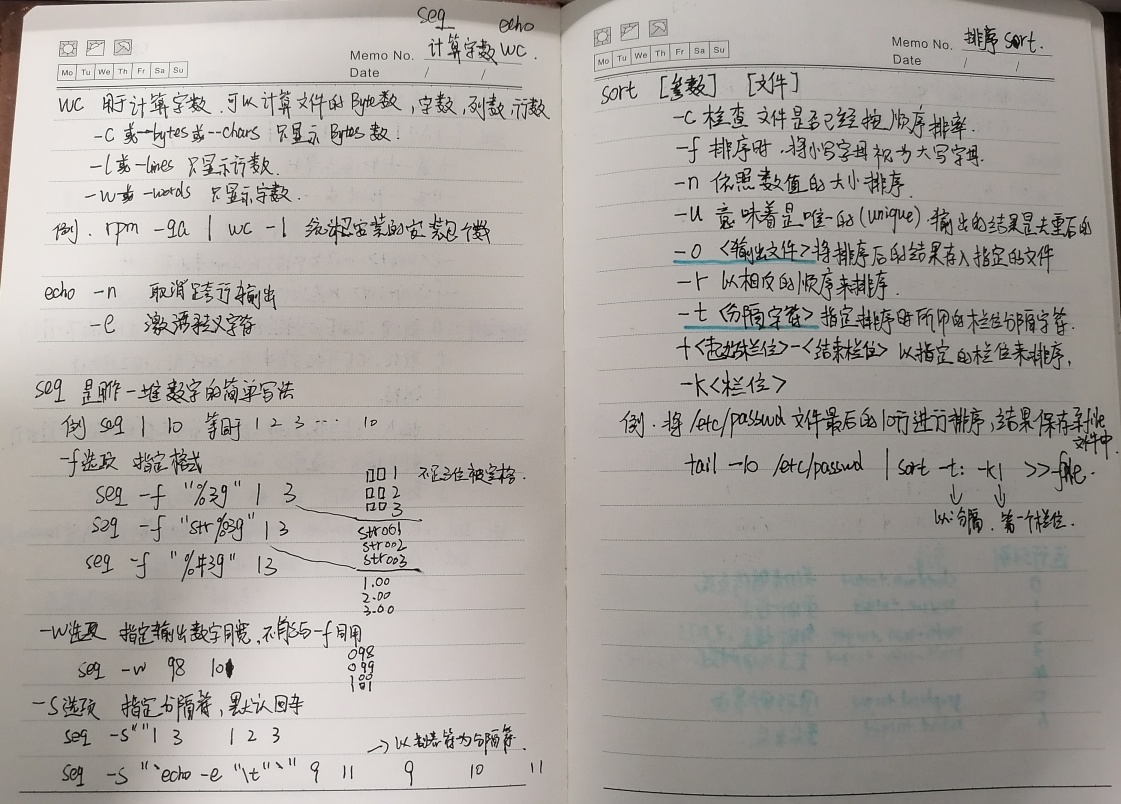 seq echo
Memo No. 计算字数 wc.
Mo Tu We Th Fr Sa Su
Date / /
wc 用于计算字数.可以计算文件的Byte数,字数,列数,行数
-c 或--bytes或--chars 只显示Bytes数.
-l或-lines 只显示行数.
-w或-words 只显示字数.
例. rpm -qa | wc -l 统计已安装的安装包个数
echo -n 取消跨行输出
-e 激活转义字符
seq 是用作一堆数字的简单写法
例 seq 1 10 等同于 1 2 3 ... 10
-f选项 指定格式
seq -f "%3g" 1 3
□□1 不足3位被空格.
□□2
□□3
seq -f "str%3g" 1 3
str001
str002
str003
seq -f "%#3g" 1 3
1.00
2.00
3.00
-w选项 指定输出数字同宽,不能与-f同用
seq -w 98 101
098
099
100
101
-s选项 指定分隔符,默认回车
seq -s" " 1 3 1 2 3
→以制表符为分隔符.
seq -s "`echo -e "\t"`" 9 11 9 10 11
Memo No. 排序 sort.
Mo Tu We Th Fr Sa Su
Date / /
sort [参数] [文件]
-c 检查文件是否已经按顺序排率.
-f 排序时.将小写字母视为大写字母.
-n 依照数值的大小排序.
-u 意味着是唯一的(unique).输出的结果是去重后的
-o <输出文件>将排序后的结果存入指定的文件
-r 以相反的顺序来排序.
-t <分隔字符>指定排序时所用的栏位分隔字符.
+<起始栏位>-<结束栏位> 以指定的栏位来排序,
-k<栏位>
例.将/etc/passwd文件最后的10行进行排序,结果保存至file
文件中.
tail -10 /etc/passwd | sort -t: -k1 >> file.
以:分隔. 第一个栏位.